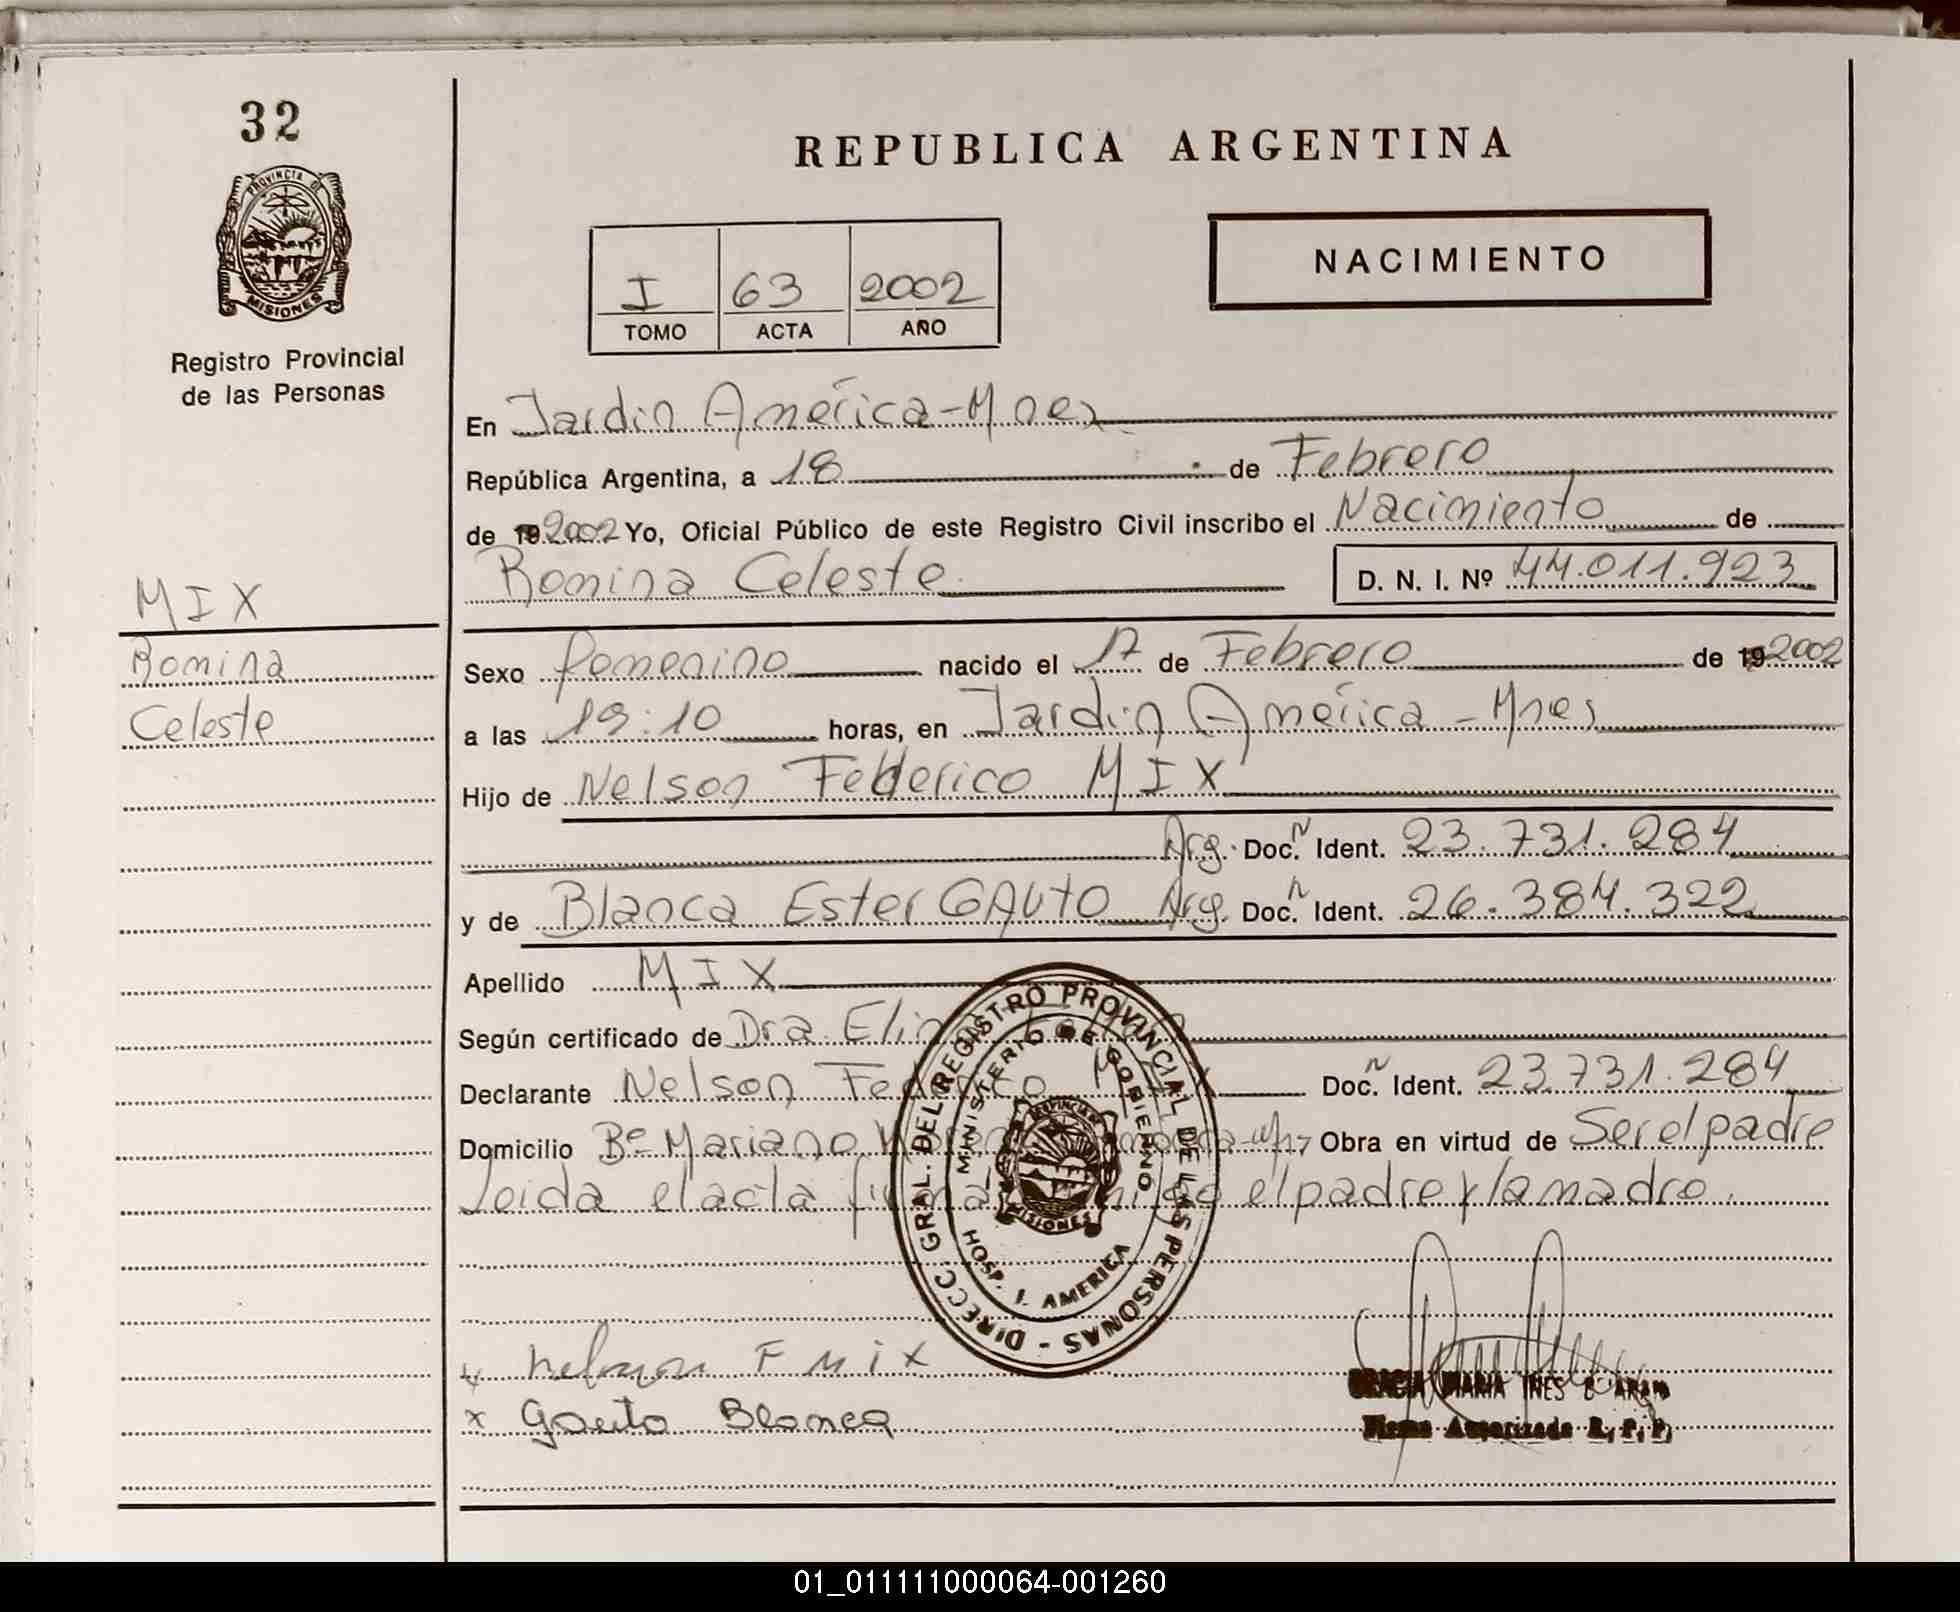 32
PROVINCIA DE
MISIONES
Registro Provincial
de las Personas
MIX
Romina
Celeste
REPUBLICA ARGENTINA
I 63 2002
TOMO ACTA AÑO
NACIMIENTO
En Jardin América-Mnes
República Argentina, a 18 de Febrero
de 19 2002 Yo, Oficial Público de este Registro Civil inscribo el Nacimiento de
Romina Celeste D. N. I. Nº 44.011.923
Sexo femenino nacido el 17 de Febrero de 19 2002
a las 19:10 horas, en Jardin América - Mnes
Hijo de Nelson Federico MIX
Arg. Doc. N Ident. 23.731.284
y de Blanca Ester GAUTO Arg. Doc. N Ident. 26.384.322
Apellido MIX
Según certificado de Dra.
Declarante Nelson Federico Doc. N Ident. 23.731.284
Domicilio Bº Mariano Obra en virtud de Ser el padre
Leida el acta el padre y la madre.
DIRECC. GRAL. DEL REGISTRO PROVINCIAL DE LAS PERSONAS -
MINISTERIO DE GOBIERNO
PROVINCIA DE
MISIONES
HOSP. J. AMERICA
Nelson F Mix
x Gauto Blanca
MARIA INES
Firma Autorizada R. P. P.
01_011111000064-001260